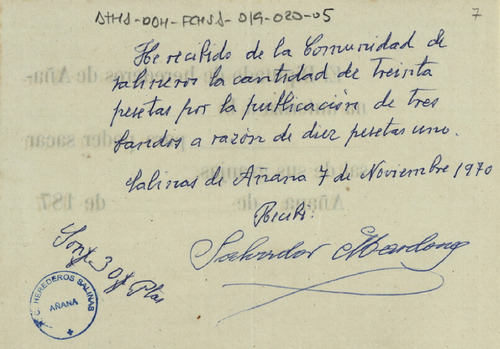 ATHA-DAH-FCHSA-019-020-05
7
He recibido de la Comunidad de
salineros la cantidad de treinta
pesetas por la publicación de tres
bandos a razón de diez pesetas uno.
Salinas de Añana 7 de Noviembre 1970
Recibí:
Salvador
Son 30 Ptas
C. HEREDEROS SALINAS
AÑANA